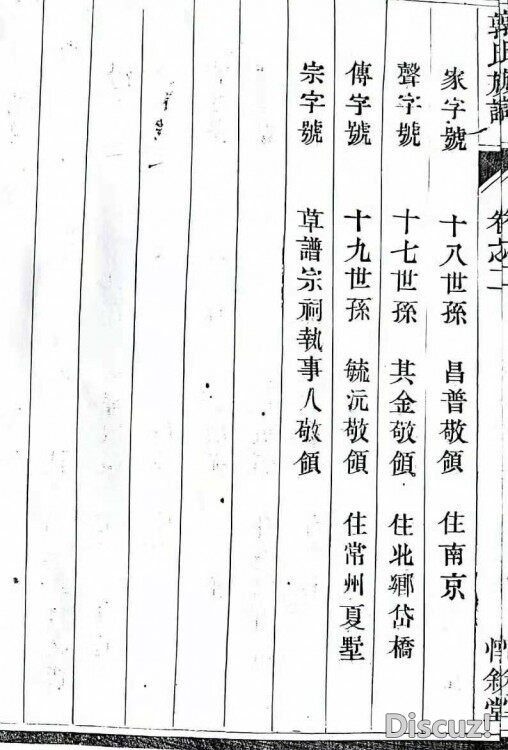 郭氏族譜
卷之二
惇叙堂
家字號 十八世孫 昌普敬領 住南京
聲字號 十七世孫 其金敬領 住北鄉岱橋
傳字號 十九世孫 毓沅敬領 住常州夏墅
宗字號 草譜宗祠執事人敬領
Discuz!